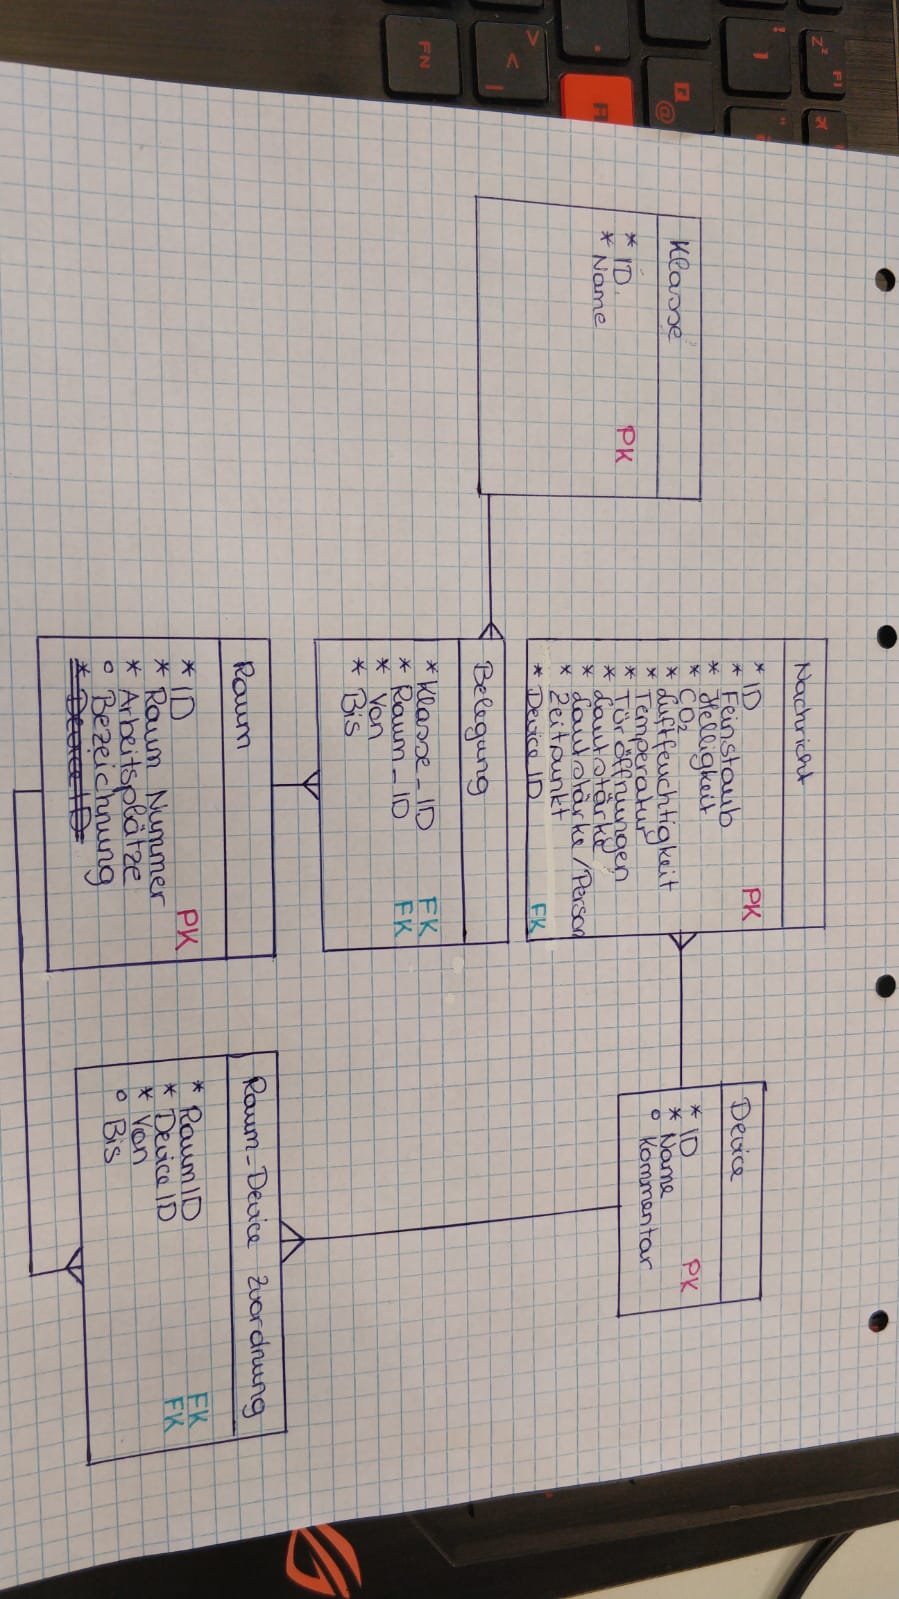 Nachricht
* ID PK
* Feinstaub
* Helligkeit
* CO₂
* Luftfeuchtigkeit
* Temperatur
* Türöffnungen
* Lautstärke
* Lautstärke/Person
* Zeitpunkt
* Device ID FK
Device
* ID PK
* Name
° Kommentar
Klasse
* ID PK
* Name
Belegung
* Klasse_ID FK
* Raum_ID FK
* Von
* Bis
Raum
* ID PK
* Raum Nummer
* Arbeitsplätze
° Bezeichnung
* Device ID
Raum_Device Zuordnung
* Raum ID FK
* Device ID FK
* Von
° Bis
F1
Z
!
1
@
>
<
|
FN